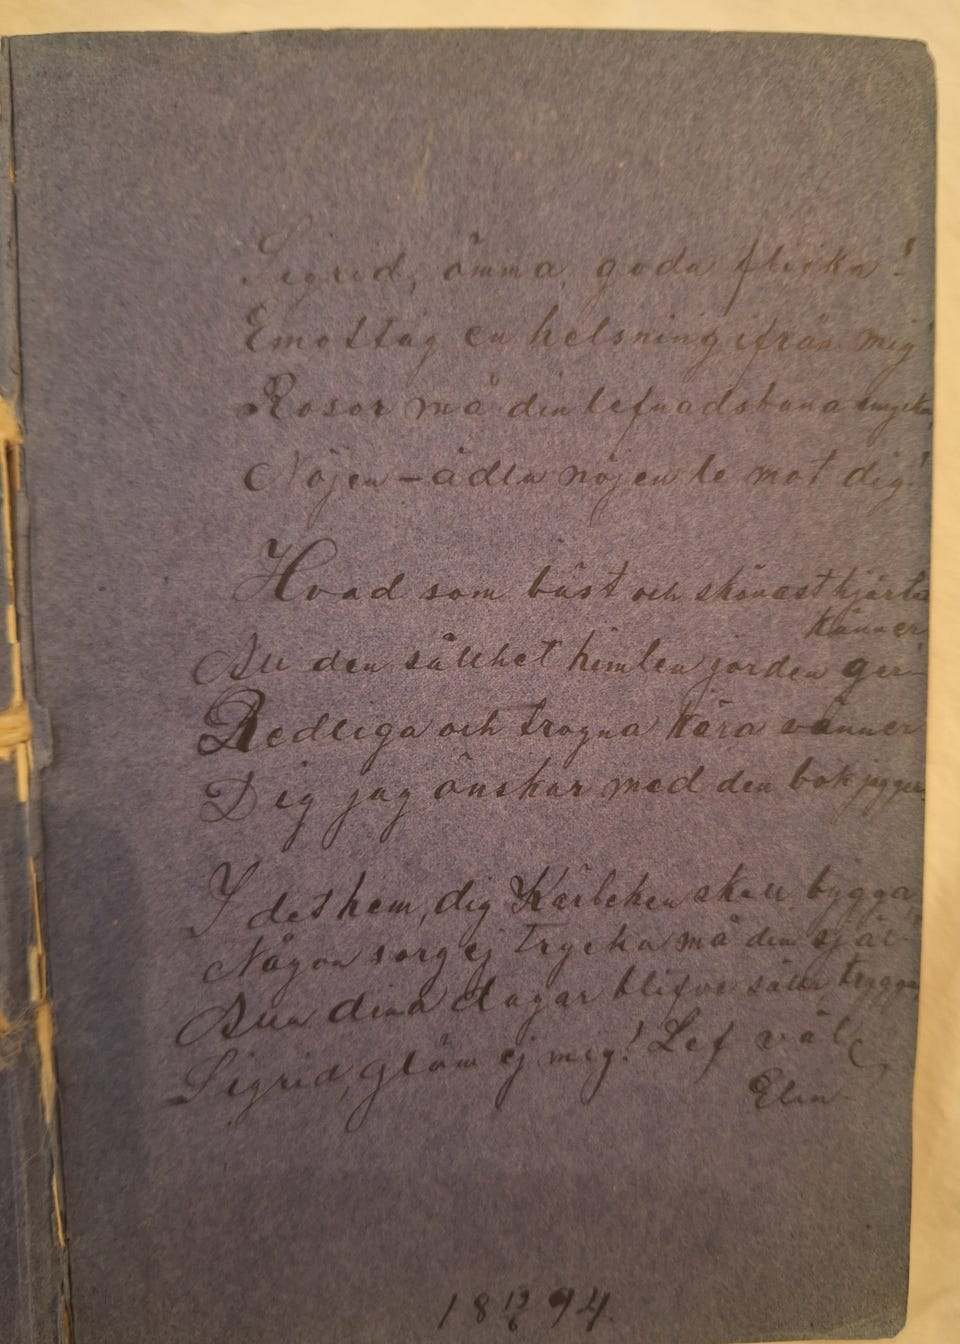 Sigrid, ömma, goda flicka!
Emottag en helsning ifrån mig
Rosor må din lefnadsbana smycka
Nöjen – ädla nöjen le mot dig!
Hvad som bäst och skönast hjärta
känner
All den sällhet himlen jorden ger
Redliga och trogna kära vänner
Dig jag önskar med den bok jag ger.
I det hem, dig Kärleken skall bygga,
Någon sorg ej trycka må din själ
Alla dina dagar blifve sälla trygga,
Sigrid, glöm ej mig! Lef väl
Elin
18 94